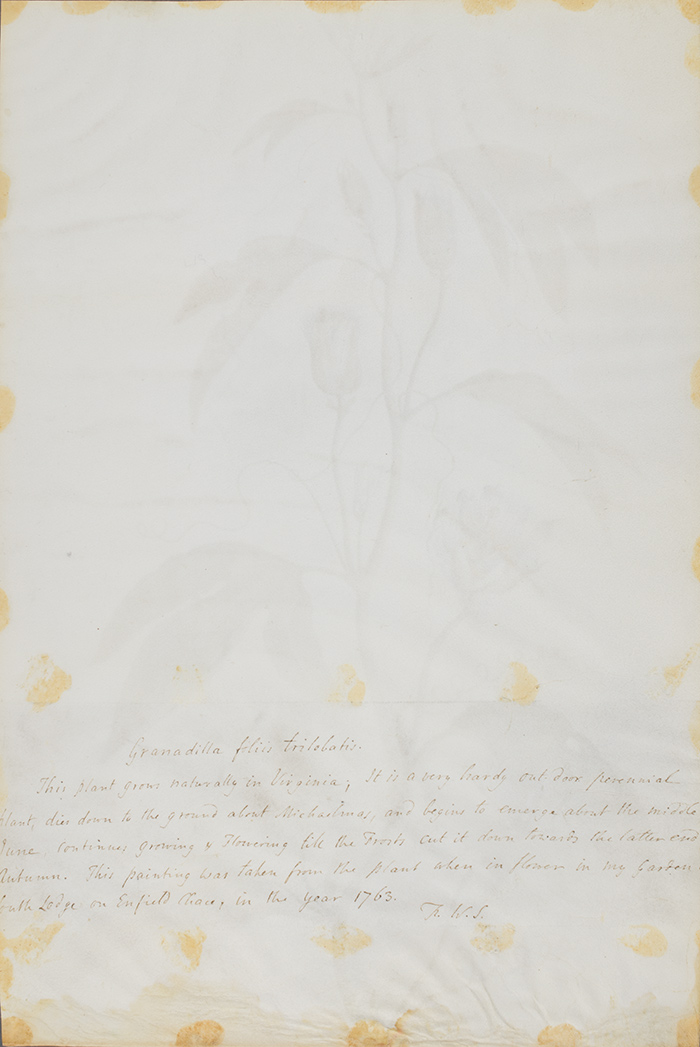 Granadilla foliis trilobatis.
This plant grows naturally in Virginia; It is a very hardy out door perennial
plant, dies down to the ground about Michaelmas, and begins to emerge about the middle
June continues growing & Flowering till the Frosts cut it down towards the latter end
Autumn. This painting was taken from the plant when in flower in my Garden
South Lodge on Enfield Chace, in the year 1763.
W. S.